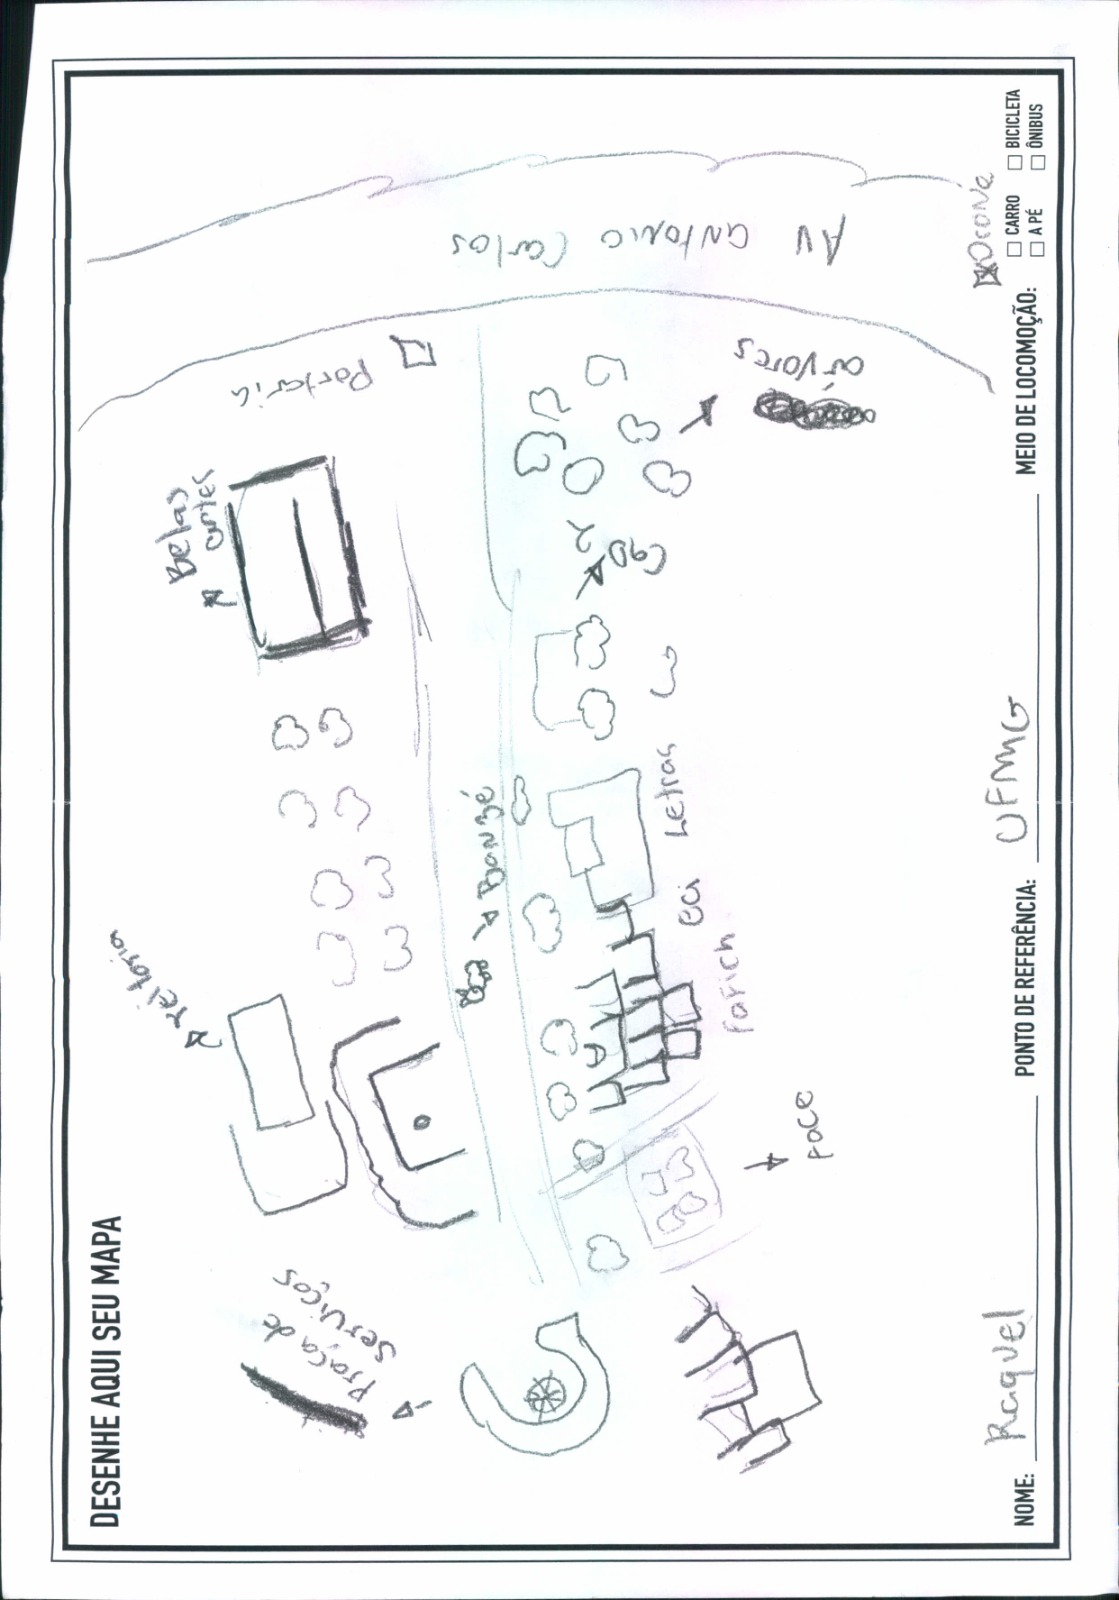 DESENHE AQUI SEU MAPA
reitoria
Belas
artes
Praça de
serviços
Portaria
Banzé
Av antonio Carlos
CAD 2
Letras
eci
Fafich
Face
árvores
Drone
NOME: Raquel
PONTO DE REFERÊNCIA: UFMG
MEIO DE LOCOMOÇÃO:
CARRO
BICICLETA
A PÉ
ÔNIBUS